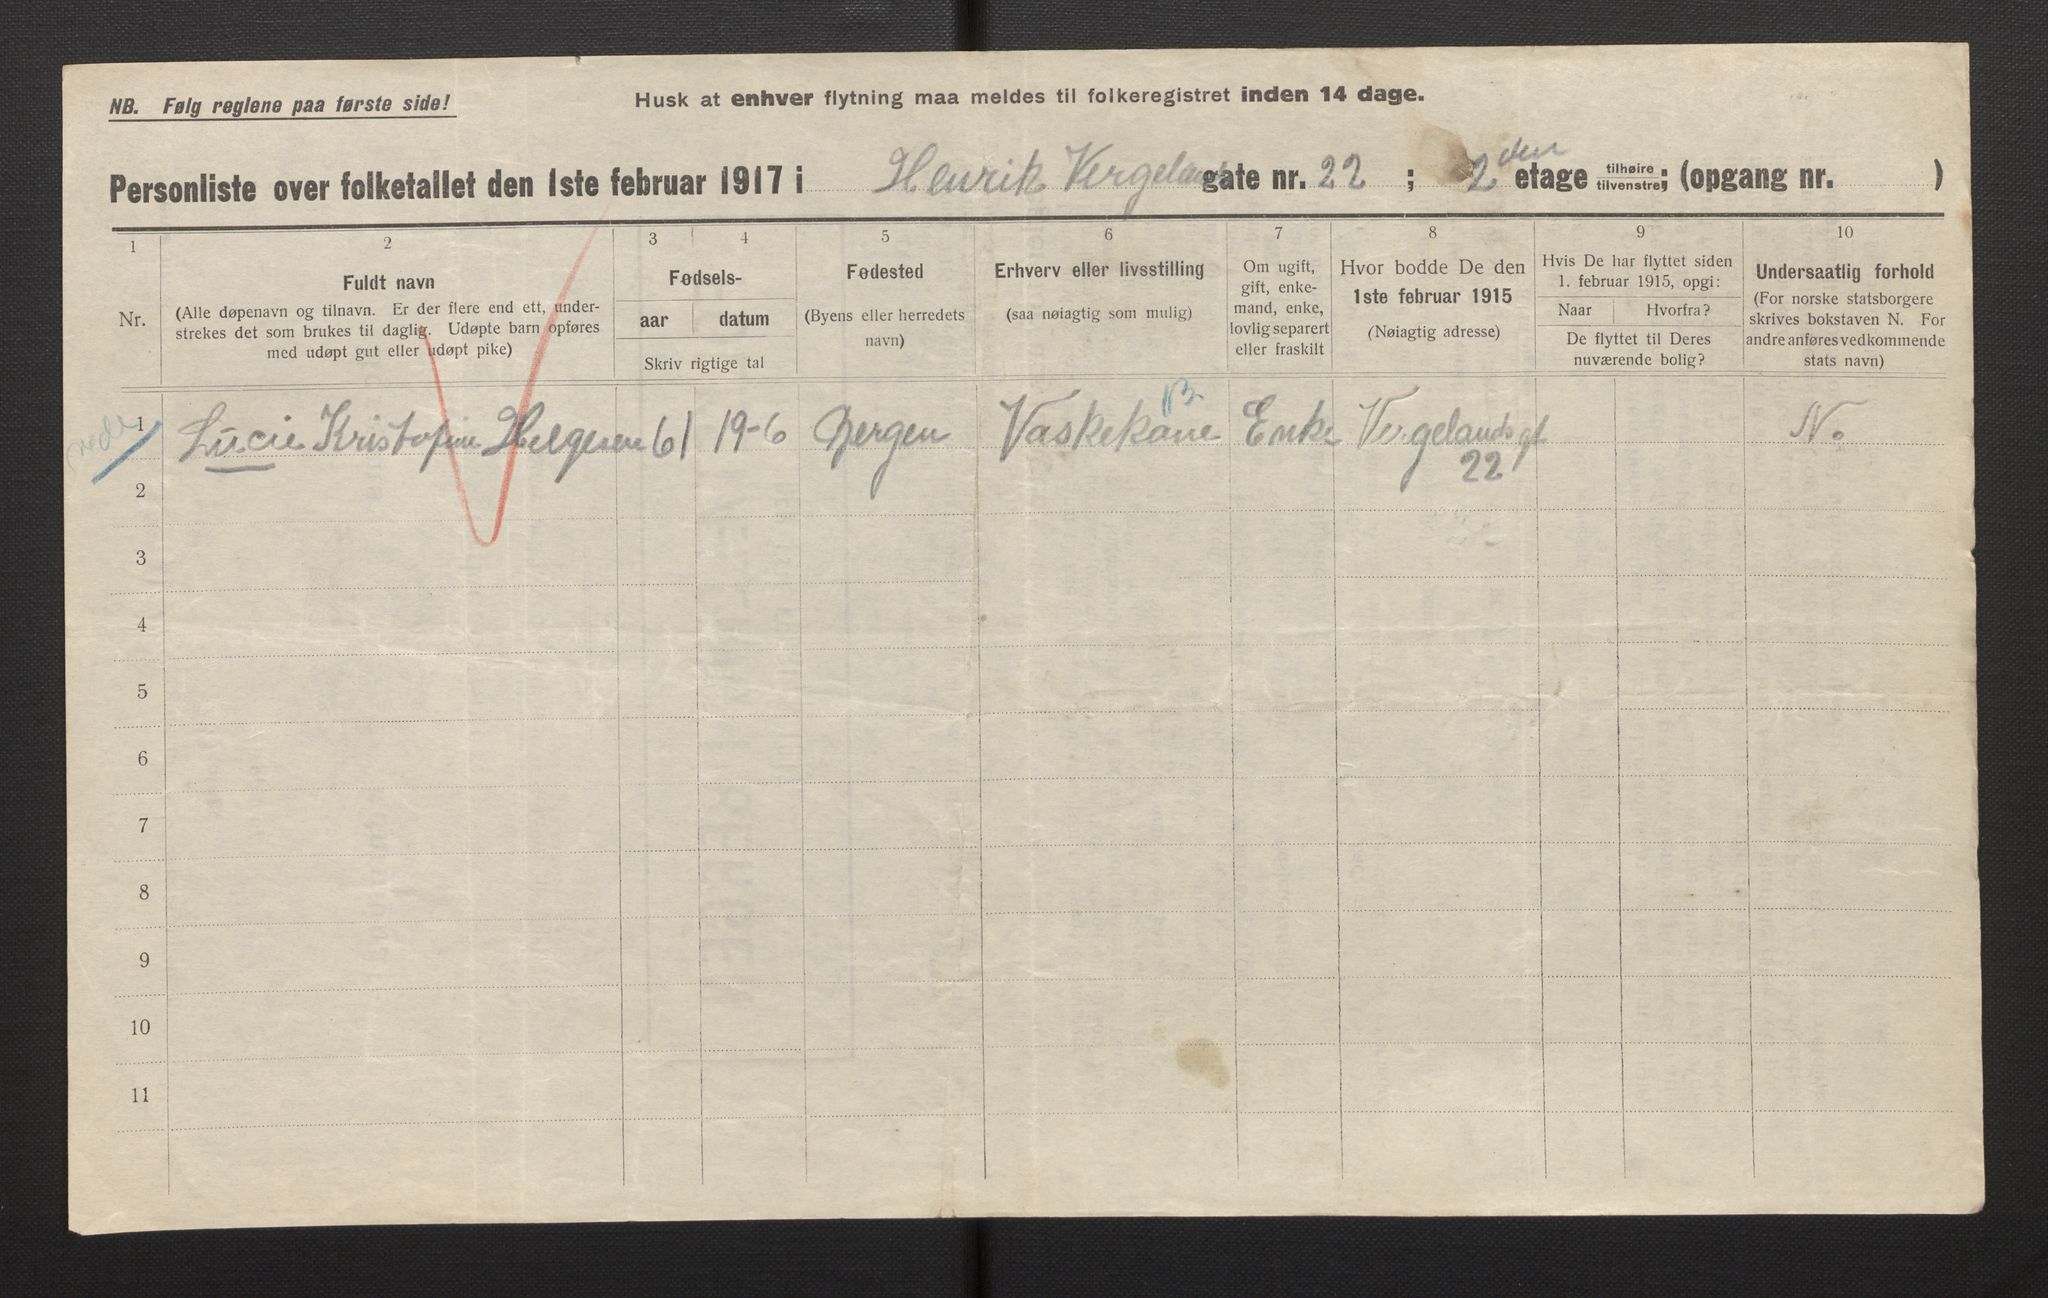 NB. Følg reglene paa første side!
Husk at enhver flytning maa meldes til folkeregistret inden 14 dage.
Personliste over folketallet den 1ste februar 1917 i Henrik Vergelands gate nr. 22 ; 2den etage tilhøire tilvenstre; (opgang nr. )
1 2 3 4 5 6 7 8 9 10
Nr.
Fuldt navn
(Alle døpenavn og tilnavn. Er der flere end ett, under-
strekes det som brukes til daglig. Udøpte barn opføres
med udøpt gut eller udøpt pike)
Fødsels-
aar datum
Skriv rigtige tal
Fødested
(Byens eller herredets
navn)
Erhverv eller livsstilling
(saa nøiagtig som mulig)
Om ugift,
gift, enke-
mand, enke,
lovlig separert
eller fraskilt
Hvor bodde De den
1ste februar 1915
(Nøiagtig adresse)
Hvis De har flyttet siden
1. februar 1915, opgi:
Naar Hvorfra?
De flyttet til Deres
nuværende bolig?
Undersaatlig forhold
(For norske statsborgere
skrives bokstaven N. For
andre anføres vedkommende
stats navn)
1 Lucie Kristofine Helgesen 61 19-6 Bergen Vaskekone Enke Vergelandsgt 22 N.
2
3
4
5
6
7
8
9
10
11